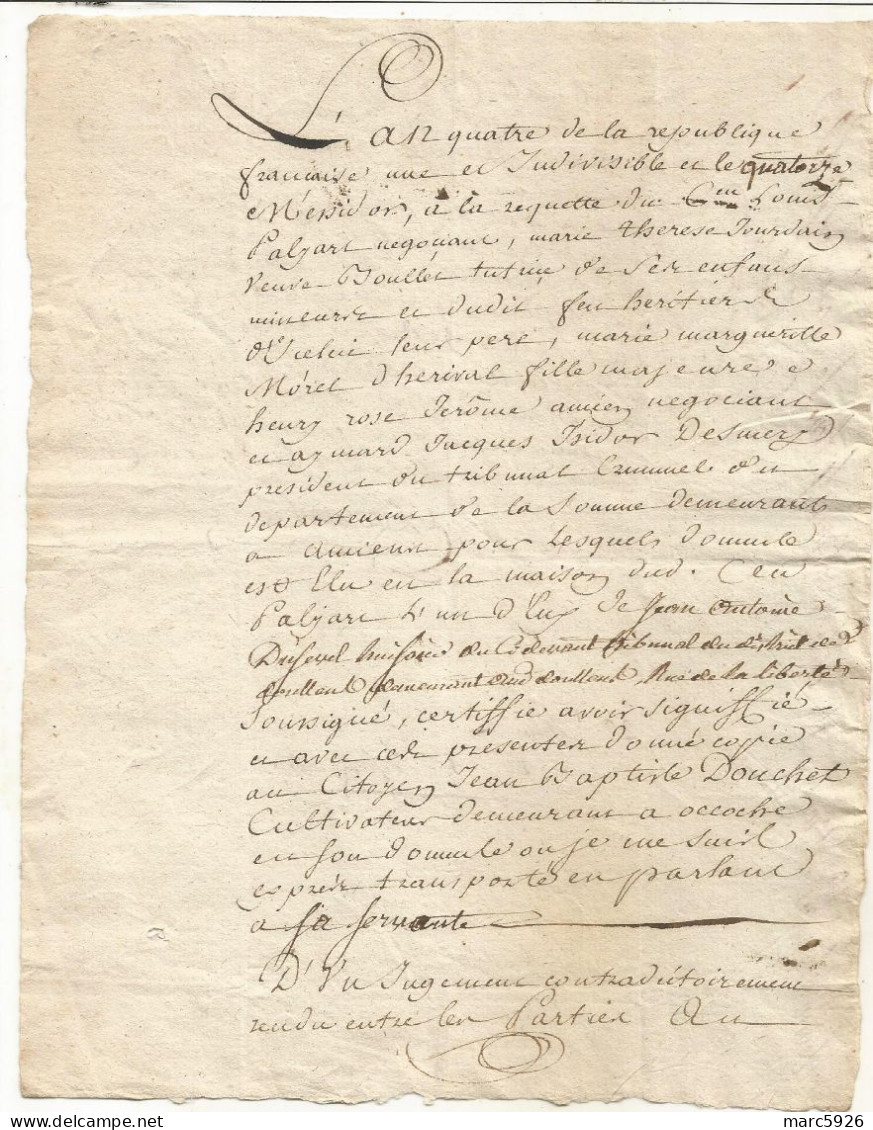 L'an quatre de la republique
francaise une et Indivisible et le quatorze
Messidor, a la requette du C.en Louis
Palyart negociant, marie therese Jourdain
Veuve Boullet tutrice de ses enfans
mineurs et dudit feu heritiers
d'Icelui leur pere, marie margueritte
Morel d'herival fille majeure e
henry rose Jerôme amien negociant
et aymard Jacques Isidor Desmery
president du tribunal Criminel du
departement de la Somme demeurants
a amiens pour lesquels domicile
est Elu en la maison dud. Cen
Palyart l'un d'Eux Je Jean antoine
Dusevel huissier du Cidevant tribunal du district de
doullens demeurant aud doullens, Rue de la liberté
Soussigné, certiffie avoir signiffié
et avec ces presentes donné copie
au Citoyen Jean Baptiste Douchet
Cultivateur demeurant a occoche
en son domicile ou je me suis
exprès transporté en parlant
a sa servante
D'Un Jugement contradictoirement
rendu entre les Parties au
marc5926